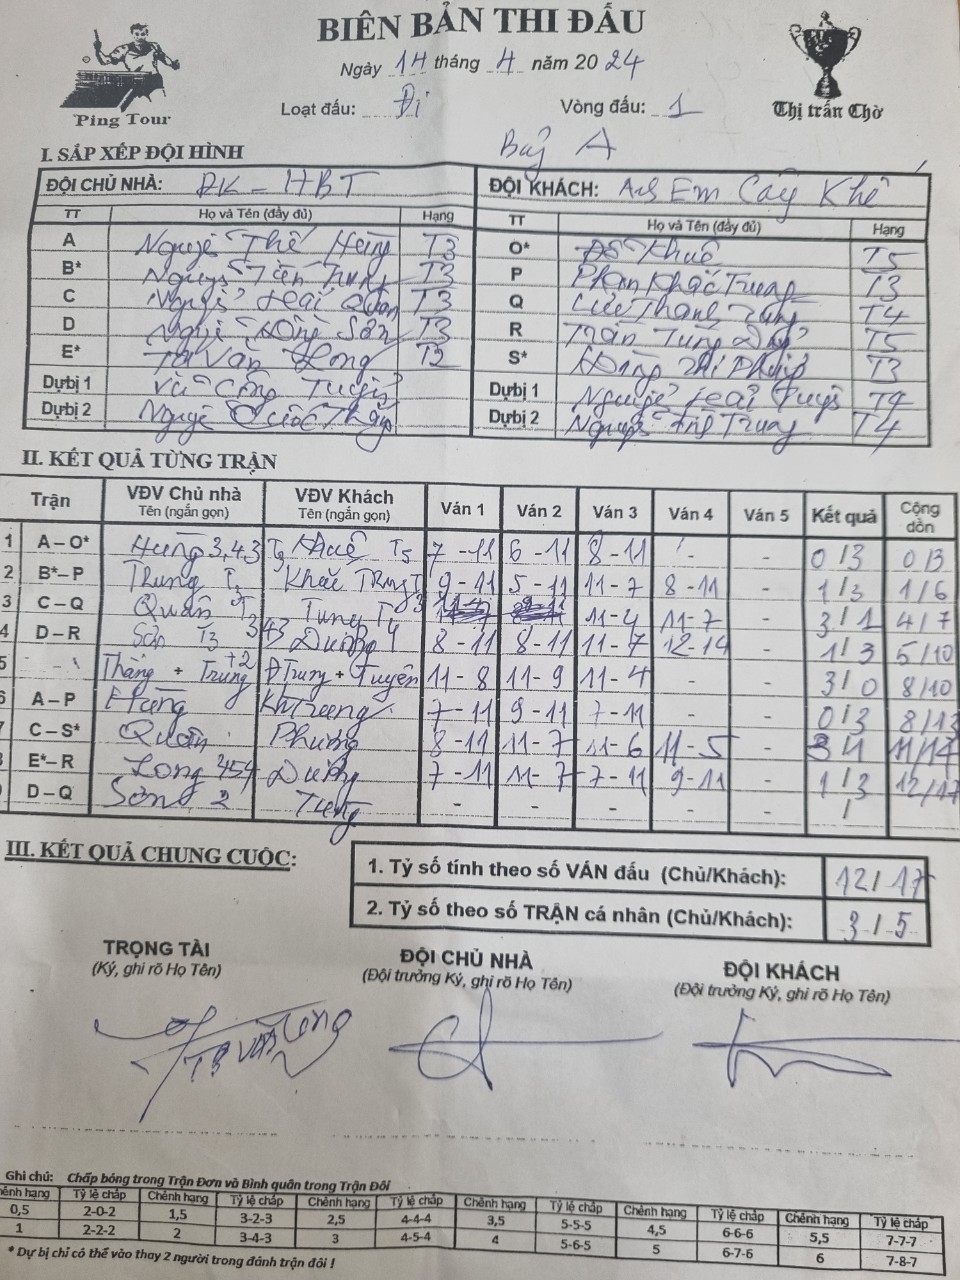 BIÊN BẢN THI ĐẤU
Ngày 14 tháng 4 năm 2024
Ping Tour
Loạt đấu: Đi Vòng đấu: 1
Thị trấn Chờ
Bảng A
I. SẮP XẾP ĐỘI HÌNH
ĐỘI CHỦ NHÀ: ĐK - HBT ĐỘI KHÁCH: Anh Em Cây Khế
TT Họ và Tên (đầy đủ) Hạng TT Họ và Tên (đầy đủ) Hạng
A Nguyễn Thế Hưng T3 O* Đỗ Khuê T5
B* Nguyễn Tiến Trung T3 P Phạm Khắc Trung T3
C Nguyễn Hải Quân T3 Q Thanh Tùng T4
D Nguyễn Sơn T3 R Trần Tùng Dương T5
E* Tạ Văn Long T2 S* Phương T3
Dự bị 1 Vũ Công Tuyến Dự bị 1 Nguyễn Hải Tuyên T4
Dự bị 2 Nguyễn Quốc Thắng Dự bị 2 Nguyễn Trung T4
II. KẾT QUẢ TỪNG TRẬN
Trận VĐV Chủ nhà VĐV Khách Ván 1 Ván 2 Ván 3 Ván 4 Ván 5 Kết quả Cộng dồn
Tên (ngắn gọn) Tên (ngắn gọn)
1 A – O* Hưng 3,43 T3 Khuê T5 7 - 11 6 - 11 8 - 11 - - 0/3 0/3
2 B* – P Trung T3 Khắc Trung T3 9 - 11 5 - 11 11 - 7 8 - 11 - 1/3 1/6
3 C – Q Quân T3 Tùng T4 11 - 4 11 - 7 - 3/1 4/7
4 D – R Sơn T3 343 Dương 8 - 11 8 - 11 11 - 7 12 - 14 - 1/3 5/10
5 Thắng + Trung +2 Đ Trung + Tuyên 11 - 8 11 - 9 11 - 4 - - 3/0 8/10
6 A – P Hưng Kh Trung 7 - 11 9 - 11 7 - 11 - - 0/3 8/13
C – S* Quân Phương 8 - 11 11 - 7 11 - 6 11 - 5 - 3/1 11/14
E* – R Long 454 Dương 7 - 11 11 - 7 7 - 11 9 - 11 - 1/3 12/17
D – Q Sơn 2 Tùng - - - - - /
III. KẾT QUẢ CHUNG CUỘC:
1. Tỷ số tính theo số VÁN đấu (Chủ/Khách): 12/17
2. Tỷ số theo số TRẬN cá nhân (Chủ/Khách): 3/5
TRỌNG TÀI ĐỘI CHỦ NHÀ ĐỘI KHÁCH
(Ký, ghi rõ Họ Tên) (Đội trưởng Ký, ghi rõ Họ Tên) (Đội trưởng Ký, ghi rõ Họ Tên)
Tạ Văn Long
Ghi chú: Chấp bóng trong Trận Đơn và Bình quân trong Trận Đôi
Chênh hạng Tỷ lệ chấp Chênh hạng Tỷ lệ chấp Chênh hạng Tỷ lệ chấp Chênh hạng Tỷ lệ chấp Chênh hạng Tỷ lệ chấp Chênh hạng Tỷ lệ chấp
0,5 2-0-2 1,5 3-2-3 2,5 4-4-4 3,5 5-5-5 4,5 6-6-6 5,5 7-7-7
1 2-2-2 2 3-4-3 3 4-5-4 4 5-6-5 5 6-7-6 6 7-8-7
* Dự bị chỉ có thể vào thay 2 người trong đánh trận đôi !